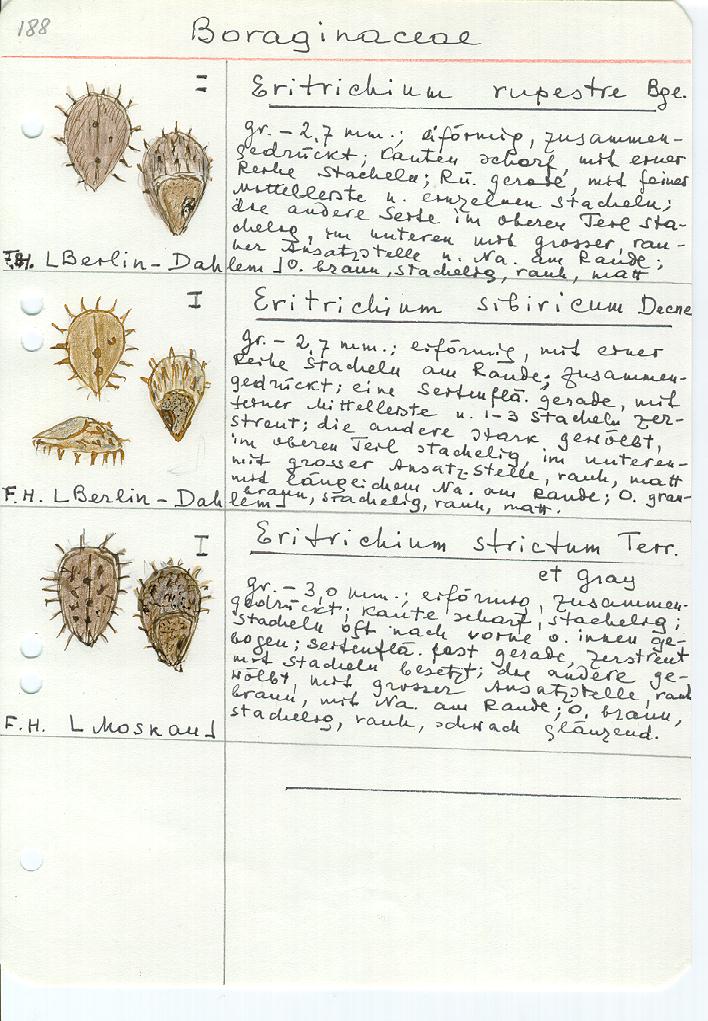 188
Boraginaceae
=
Eritrichium rupestre Bge.
gr. - 2,7 mm.; eiförmig, zusammen-
gedrückt; Kanten scharf, mit einer
Reihe Stacheln; Rü. gerade, mit feiner
Mittelleiste u. einzelnen Stacheln;
die andere Seite im oberen Teil sta-
chelig, im unteren mit grosser, rau-
her Ansatzstelle u. Na. am Rande;
F.H. [Berlin-Dahlem] O. braun, stachelig, rauh, matt
I
Eritrichium sibiricum Decne
gr. - 2,7 mm.; eiförmig, mit einer
Reihe Stacheln am Rande; zusammen-
gedrückt; eine Seitenflä. gerade, mit
feiner Mittelleiste u. 1-3 Stacheln zer-
streut; die andere stark gewölbt,
im oberen Teil stachelig, im unteren-
mit grosser Ansatz-stelle, rauh, matt
mit länglichem Na. am Rande; O. grau-
F.H. [Berlin-Dahlem] braun, stachelig, rauh, matt.
I
Eritrichium strictum Terr.
et Gray
gr. - 3,0 mm.; eiförmig, zusammen-
gedrückt; Kante scharf, stachelig;
Stacheln oft nach vorne o. innen ge-
bogen; Seitenflä. fast gerade, zerstreut
mit Stacheln besetzt; die andere ge-
wölbt, mit grosser Ansatzstelle, rauh
braun, mit Na. am Rande; O. braun,
stachelig, rauh, schwach glänzend.
F.H. [Moskau]